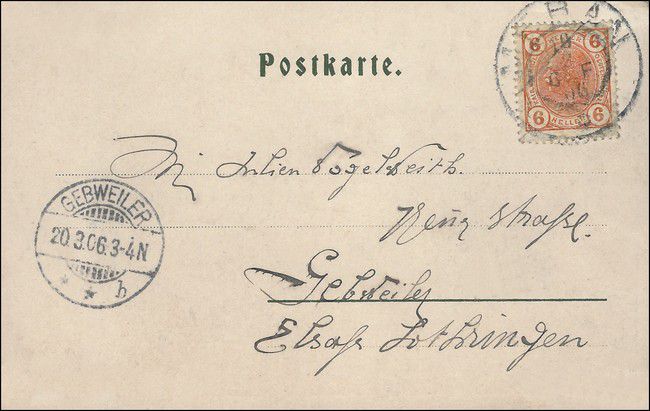 Postkarte.
6 6
6 HELLER 6
Julien Vogelweith.
Neue Straße.
Gebweiler
Elsaß Lothringen
GEBWEILER
20.3.06.3-4N
* * b